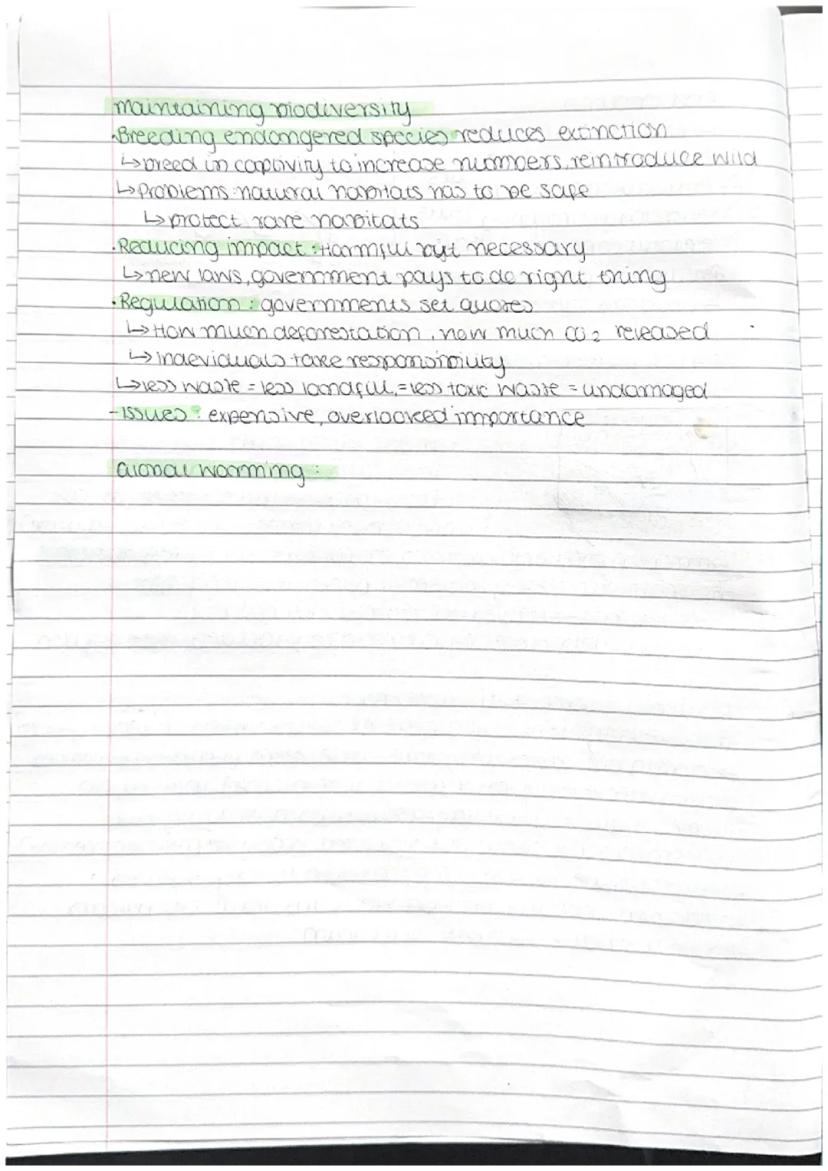 maintaining biodiversity
·Breeding endangered species reduces extinction
↳breed in captivity to increase numbers, reintroduce wild
↳Problems: natural habitats has to be safe
↳protect rare habitats
·Reducing impact: Harmful but necessary
↳new laws, government pays to do right thing
·Regulation: governments set quotes
↳How much deforestation, how much CO2 released
↳indeviduals take responsibility
↳less waste = less landfill, = less toxic waste = undamaged
-Issues: expensive, overlooked importance
Global warming: